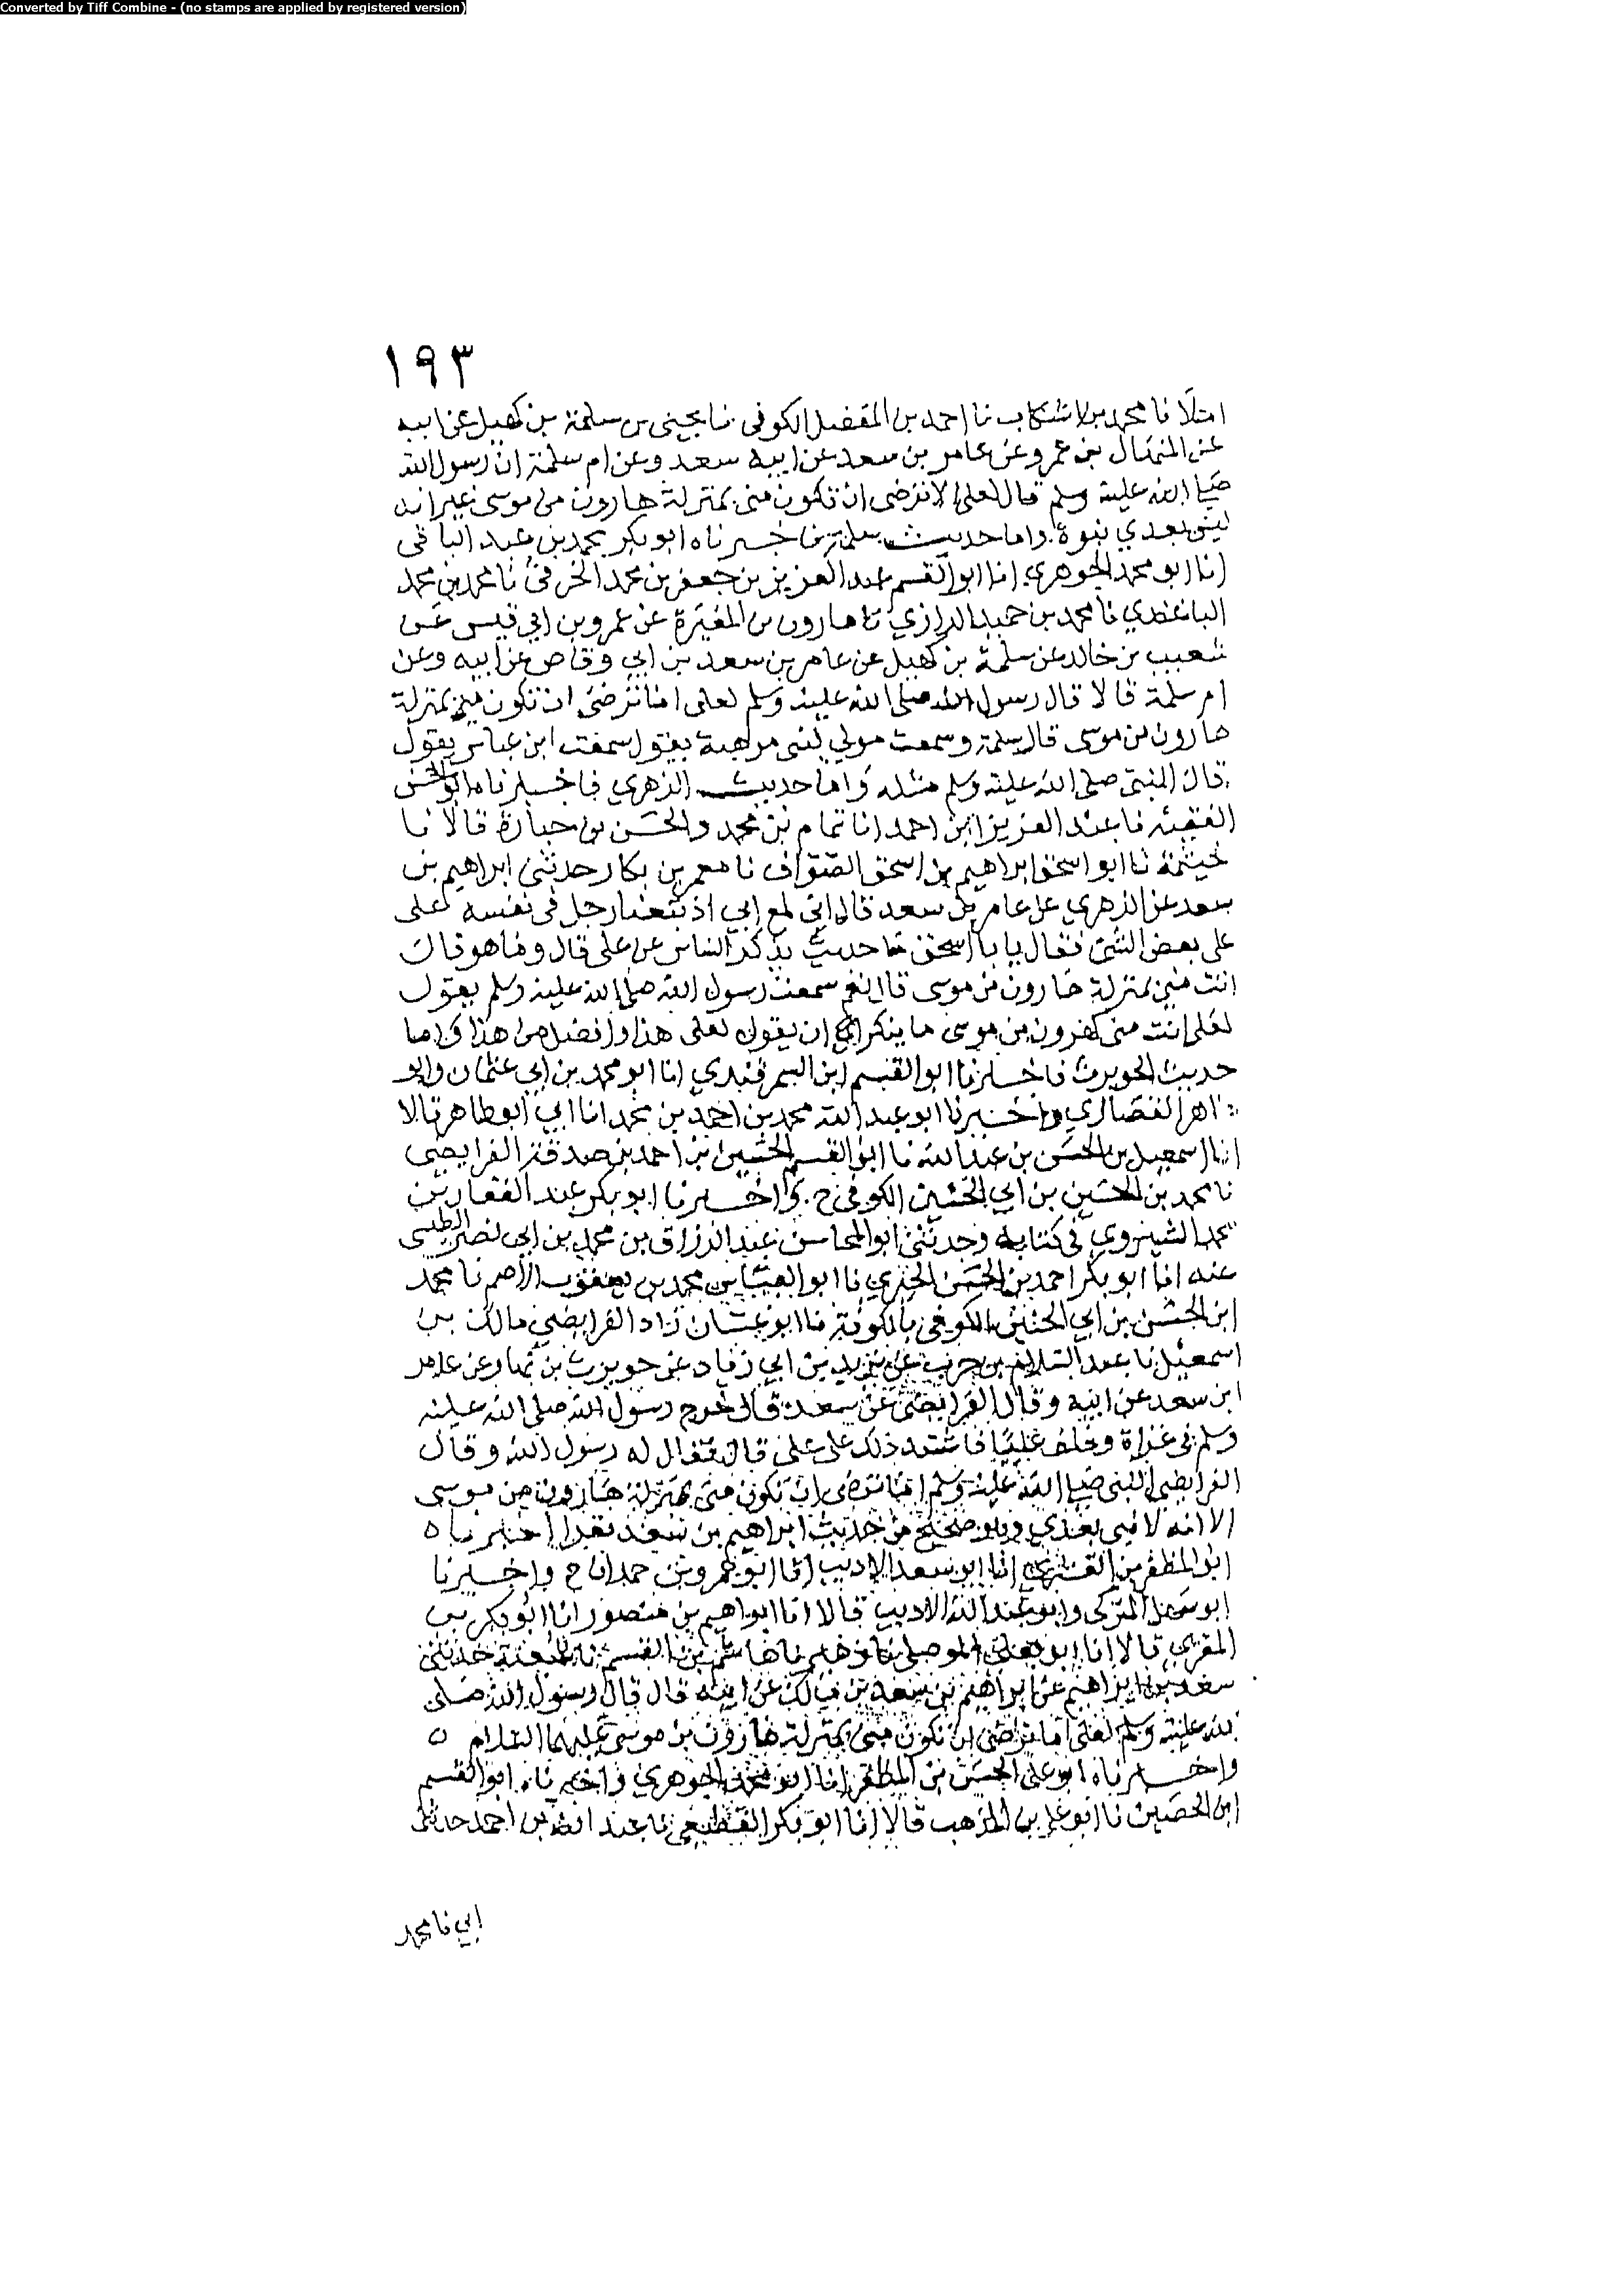 Converted by Tiff Combine - (no stamps are applied by registered version)
١٩٣
املا نا محمد بن اشكاب نا احمد بن المفضل الكوفى نا يحيى بن سلمة بن كهيل عن ابيه
عن المنهال بن عمرو عن عامر بن سعد عن ابيه سعد وعن ام سلمة ان رسول الله
صلى الله عليه وسلم قال لعلى الا ترضى ان تكون منى بمنزلة هارون من موسى غير انه
ليس بعدي نبوة واما حديث سلمة فاخبرناه ابو بكر محمد بن عبد الباقى
انا ابو محمد الجوهري انا ابو القسم عبد العزيز بن جعفر بن محمد الخرقى نا محمد بن محمد
الباغندي نا محمد بن حميد الرازي نا هارون بن المغيرة عن عمرو بن ابي قيس عن
شعيب بن خالد عن سلمة بن كهيل عن عامر بن سعد بن ابي وقاص عن ابيه وعن
ام سلمة قالا قال رسول الله صلى الله عليه وسلم لعلى اما ترضى ان تكون منى بمنزلة
هارون من موسى قال سلمة وسمعت مولي لبنى موهبة يقول سمعت ابن عباس يقول
قال النبى صلى الله عليه وسلم مثله واما حديث الزهري فاخبرناه ابو الحسن
الفقيه نا عبد العزيز ابن احمد انا تمام بن محمد والحسن بن حبارة قالا نا
خيثمة نا ابو اسحق ابراهيم بن اسحق الصواف نا معمر بن بكار حدثنى ابراهيم بن
سعد عن الزهري عن عامر بن سعد قال انى لمع ابي اذ تبعنا رجل فى نفسه لعلى
على بعض الشئ فقال يا با اسحق ما حديث يذكر الناس عن على قال وما هو قال
انت منى بمنزلة هارون من موسى قال نعم سمعت رسول الله صلى الله عليه وسلم يقول
لعلى انت منى كهرون من موسى ما ينكر ان يقول لعلى هذا وافضل من هذا واما
حديث الحويرث فاخبرنا ابو القسم ابن السمرقندي انا ابو محمد بن ابي عثمان وابو
طاهر القصاري واخبرنا ابو عبد الله محمد بن احمد بن محمد انا ابي ابو طاهر قالا
انا اسمعيل بن الحسن بن عبد الله نا ابو القسم الحسين بن احمد بن صدقة الفرايضى
نا محمد بن الحسين بن ابي الحنين الكوفى ح واخبرنا ابو بكر عبد الغفار بن
محمد الشيروي فى كتابه وحدثنى ابو المحاسن عبد الرزاق بن محمد بن ابى نصر الطبسى
عنه انا ابو بكر احمد بن الحسن الحيري نا ابو العباس محمد بن يعقوب الاصم نا محمد
ابن الحسين بن ابي الحنين الكوفى بالكوفة نا ابو غسان زاد الفرايضى مالك بن
اسمعيل نا عبد السلام بن حرب عن يزيد بن ابي زياد عن حويرث بن نهار عن عامر
ابن سعد عن ابيه وقال الفرايضى عن سعد قال خرج رسول الله صلى الله عليه
وسلم فى غزاة وخلف عليا فاشتد ذلك على على قال فقال له رسول الله وقال
الفرايضى النبى صلى الله عليه وسلم اما ترضى ان تكون منى بمنزلة هارون من موسى
الا انه لا نبى بعدي وهو صحيح من حديث ابراهيم بن سعد اخبرناه
ابو المظفر بن القشيري انا ابو سعد الاديب انا ابو عمرو بن حمدان ح واخبرنا
ابو سهل المزكى وابو عبد الله الاديب قالا انا ابراهيم بن منصور انا ابو بكر بن
المقري قالا انا ابو يعلى الموصلى نا زهير نا هاشم بن القسم نا شعبة حدثنى
سعد بن ابراهيم عن ابراهيم بن سعد بن مالك عن ابيه قال قال رسول الله صلى
الله عليه وسلم لعلى اما ترضى ان تكون منى بمنزلة هارون من موسى عليهما السلام ٥
واخبرناه ابو على الحسن بن المظفر انا ابو محمد الجوهري واخبرناه ابو القسم
ابن الحصين نا ابو على بن المذهب قالا انا ابو بكر القطيعى نا عبد الله بن احمد حدثنى
ابي نا محمد